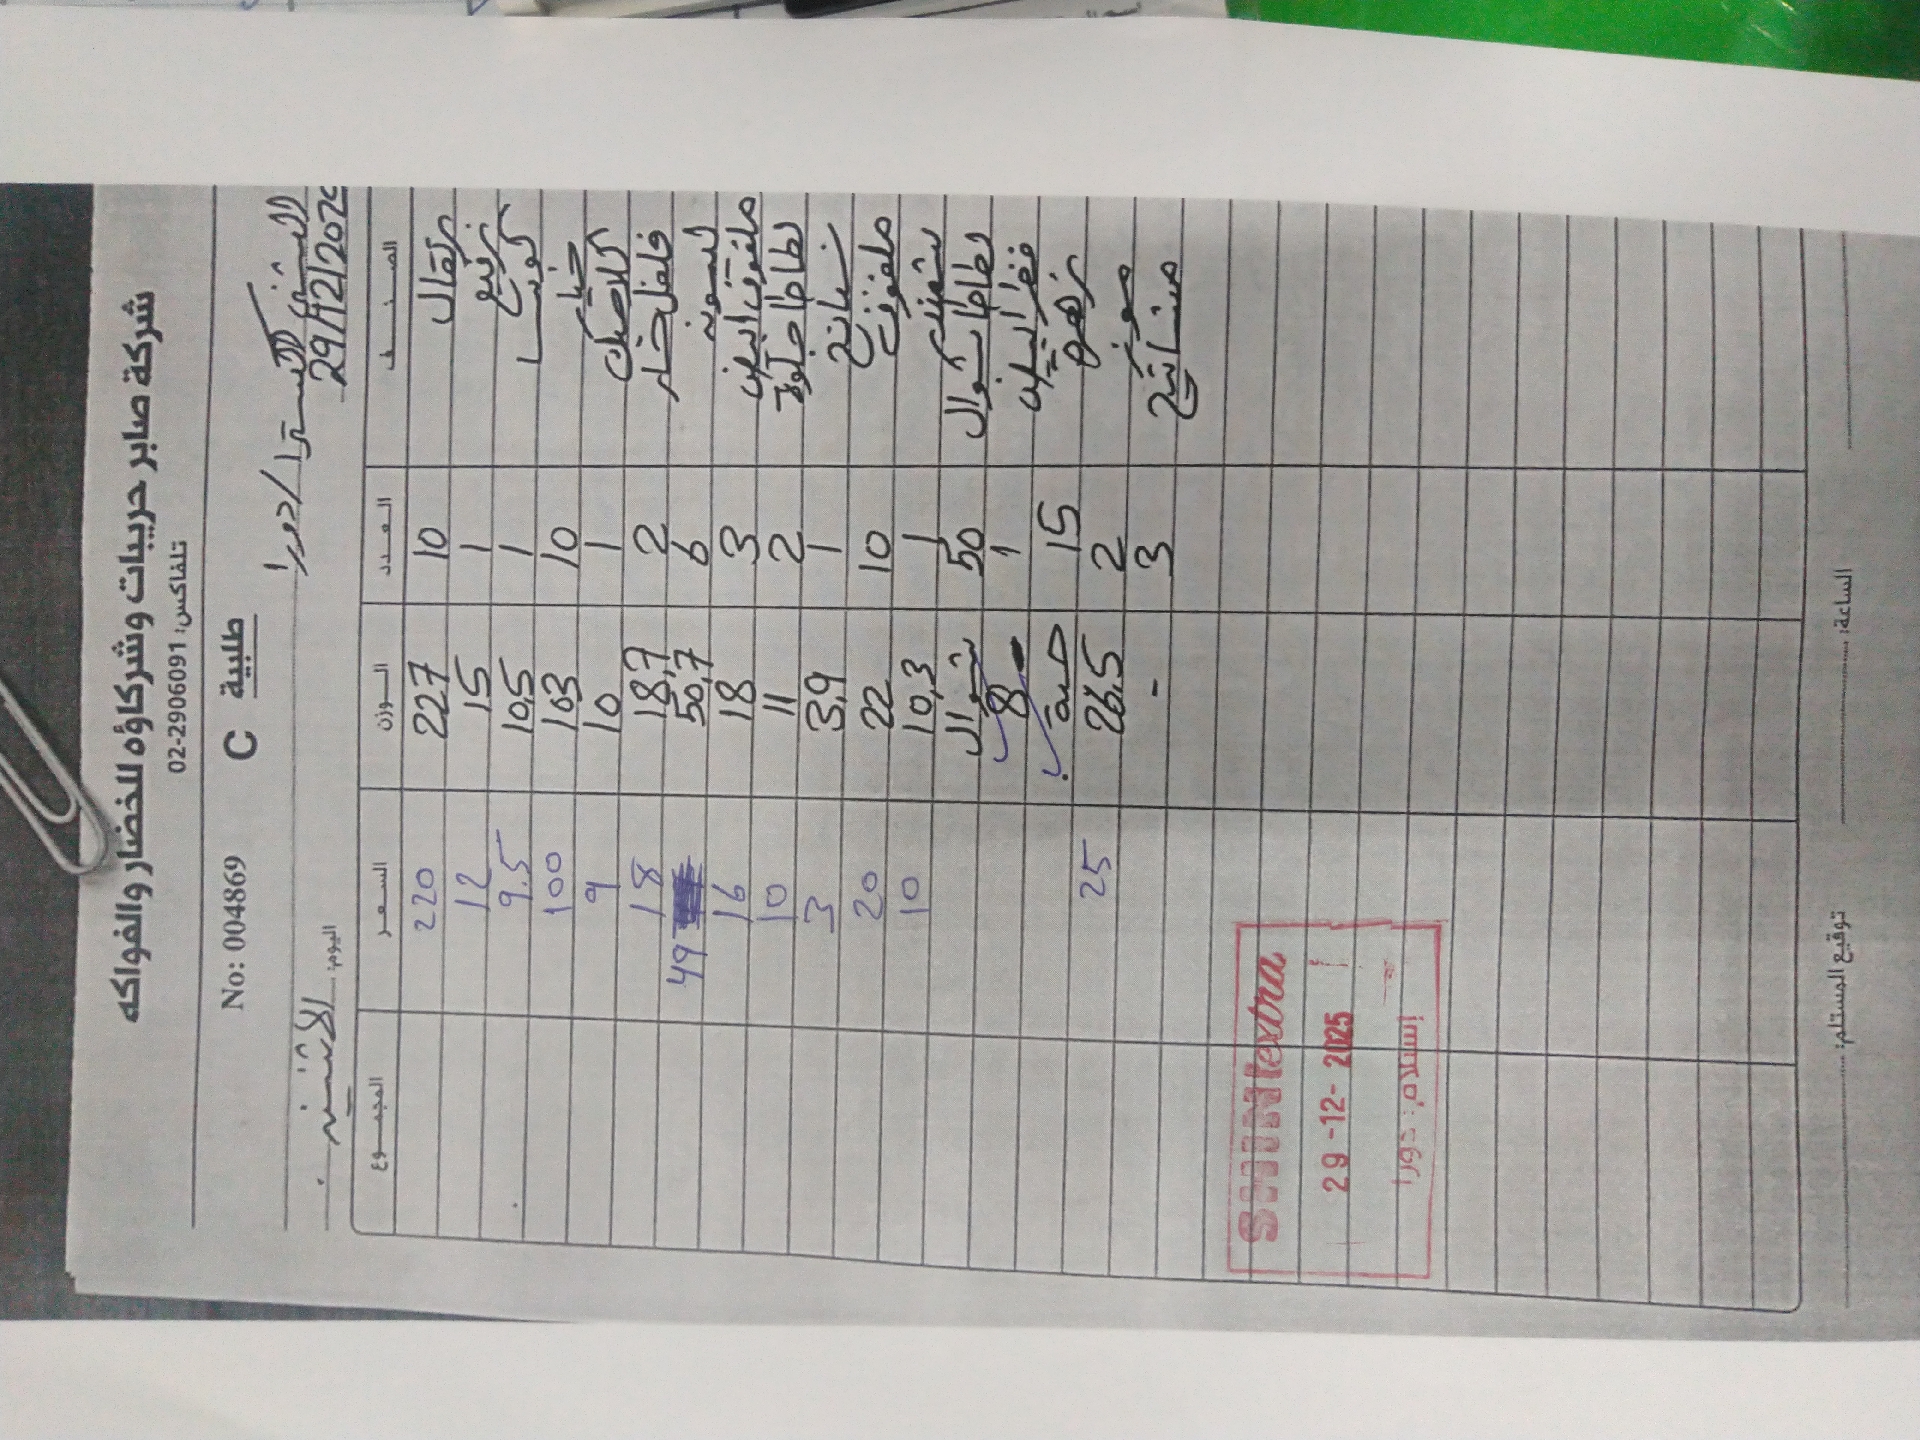 شركة صابر حريبات وشركاؤه للخضار والفواكه
تلفاكس: 02-2906091
No: 004869 C طلبية
اكسترا / دورا
اليوم: الاثنين 29/12/2025
الصنف العدد الوزن السعر المجموع
برتقال 10 227 220
1 15 12
كوسا 1 10,5 9.5
خيار 10 103 100
1 10 9
فلفل حار 2 18,7 18
ليمون 6 50,7 49
ملفوف 3 18 16
بطاطا حلوة 2 11 10
سبانخ 1 3,9 3
ملفوف 10 22 20
1 10,3 10
بطاطا شوال 50 شوال
فطر 1 8
زهرة 15 حبة
موز 2 26.5 25
3 -
SHINI extra
29-12-2025
إستلام: دورا
توقيع المستلم: الساعة: